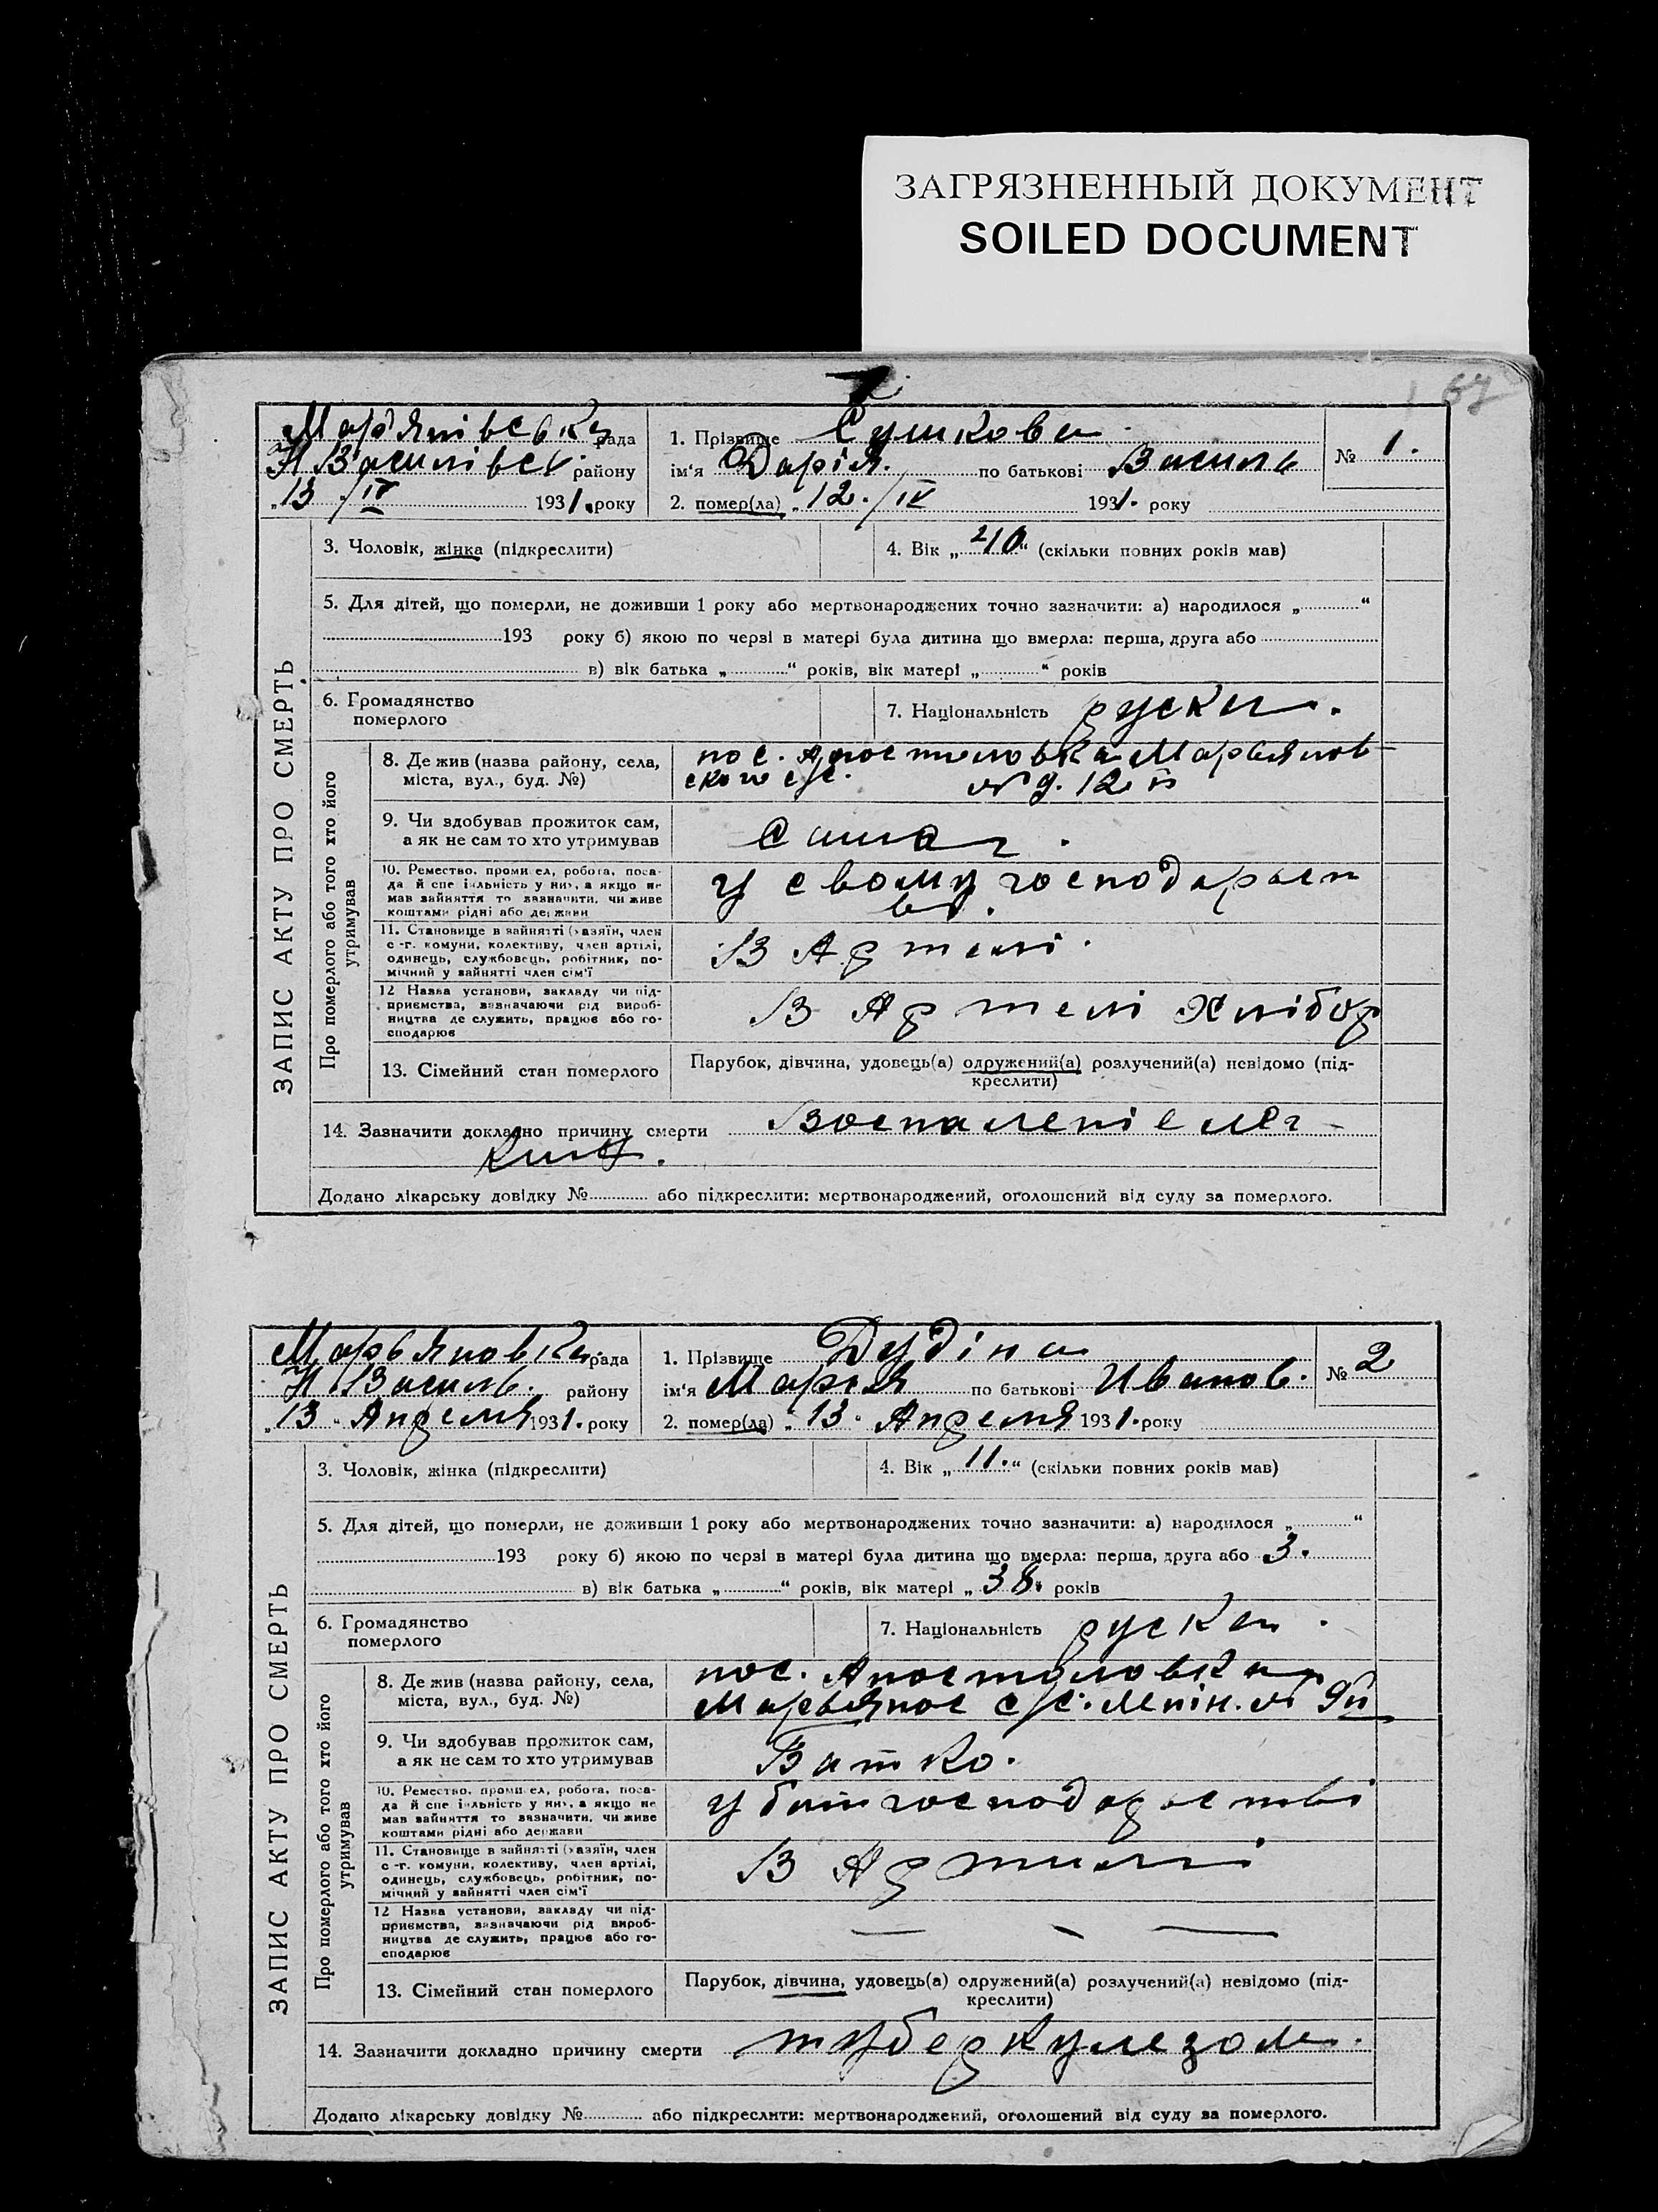 ЗАГРЯЗНЕННЫЙ ДОКУМЕНТ
SOILED DOCUMENT
67
Мар'янівська рада
Н Василивск. району
„13 /IV 1931. року
1. Прізвище Сушкова
ім‘я Дарія. по батькові Василь
2. помер(ла) „12./IV 1931. року
№ 1.
ЗАПИС АКТУ ПРО СМЕРТЬ
3. Чоловік, жінка (підкреслити)
4. Вік „40“ (скільки повних років мав)
5. Для дітей, що померли, не доживши 1 року або мертвонароджених точно зазначити: а) народилося „............“
193 року б) якою по черзі в матері була дитина що вмерла: перша, друга або
в) вік батька „............“ років, вік матері „............“ років
6. Громадянство померлого
7. Національність руска.
Про померлого або того хто його утримував
8. Де жив (назва району, села, міста, вул., буд. №)
пос. Апостоловка Марьянов-
ского с/с. № д. 12
9. Чи здобував прожиток сам, а як не сам то хто утримував
сама.
10. Ремество, промисел, робота, посада й спеціяльність у них, а якщо не мав зайняття то зазначити, чи живе коштами рідні або держави
у свому господарст
ві.
11. Становище в зайнятті (хазяїн, член с.-г. комуни, колективу, член артілі, одинець, службовець, робітник, помічний у зайнятті член сім'ї
В Артелі.
12 Назва установи, закладу чи підприємства, зазначаючи рід виробництва де служить, працює або господарює
В Артелі Хлібор
13. Сімейний стан померлого
Парубок, дівчина, удовець(а) одружений(а) розлучений(а) невідомо (підкреслити)
14. Зазначити докладно причину смерти Воспаленіе лег-
ких.
Додано лікарську довідку №............ або підкреслити: мертвонароджений, оголошений від суду за померлого.
Марьяновка рада
Н Василь. району
„13 „ Апреля 1931. року
1. Прізвище Дудіна
ім‘я Марія по батькові Иванов.
2. помер(ла) „13. Апреля 1931. року
№ 2
ЗАПИС АКТУ ПРО СМЕРТЬ
3. Чоловік, жінка (підкреслити)
4. Вік „11.“ (скільки повних років мав)
5. Для дітей, що померли, не доживши 1 року або мертвонароджених точно зазначити: а) народилося „............“
193 року б) якою по черзі в матері була дитина що вмерла: перша, друга або 3.
в) вік батька „............“ років, вік матері „38.“ років
6. Громадянство померлого
7. Національність руска.
Про померлого або того хто його утримував
8. Де жив (назва району, села, міста, вул., буд. №)
пос. Апостоловка
Марьянос с/с. Ленін. №
9. Чи здобував прожиток сам, а як не сам то хто утримував
Батко.
10. Ремество, промисел, робота, посада й спеціяльність у них, а якщо не мав зайняття то зазначити, чи живе коштами рідні або держави
у бат господарстві
11. Становище в зайнятті (хазяїн, член с.-г. комуни, колективу, член артілі, одинець, службовець, робітник, помічний у зайнятті член сім'ї
В Артилі
12 Назва установи, закладу чи підприємства, зазначаючи рід виробництва де служить, працює або господарює
— — —
13. Сімейний стан померлого
Парубок, дівчина, удовець(а) одружений(а) розлучений(а) невідомо (підкреслити)
14. Зазначити докладно причину смерти туберкулезом.
Додано лікарську довідку №............ або підкреслити: мертвонароджений, оголошений від суду за померлого.